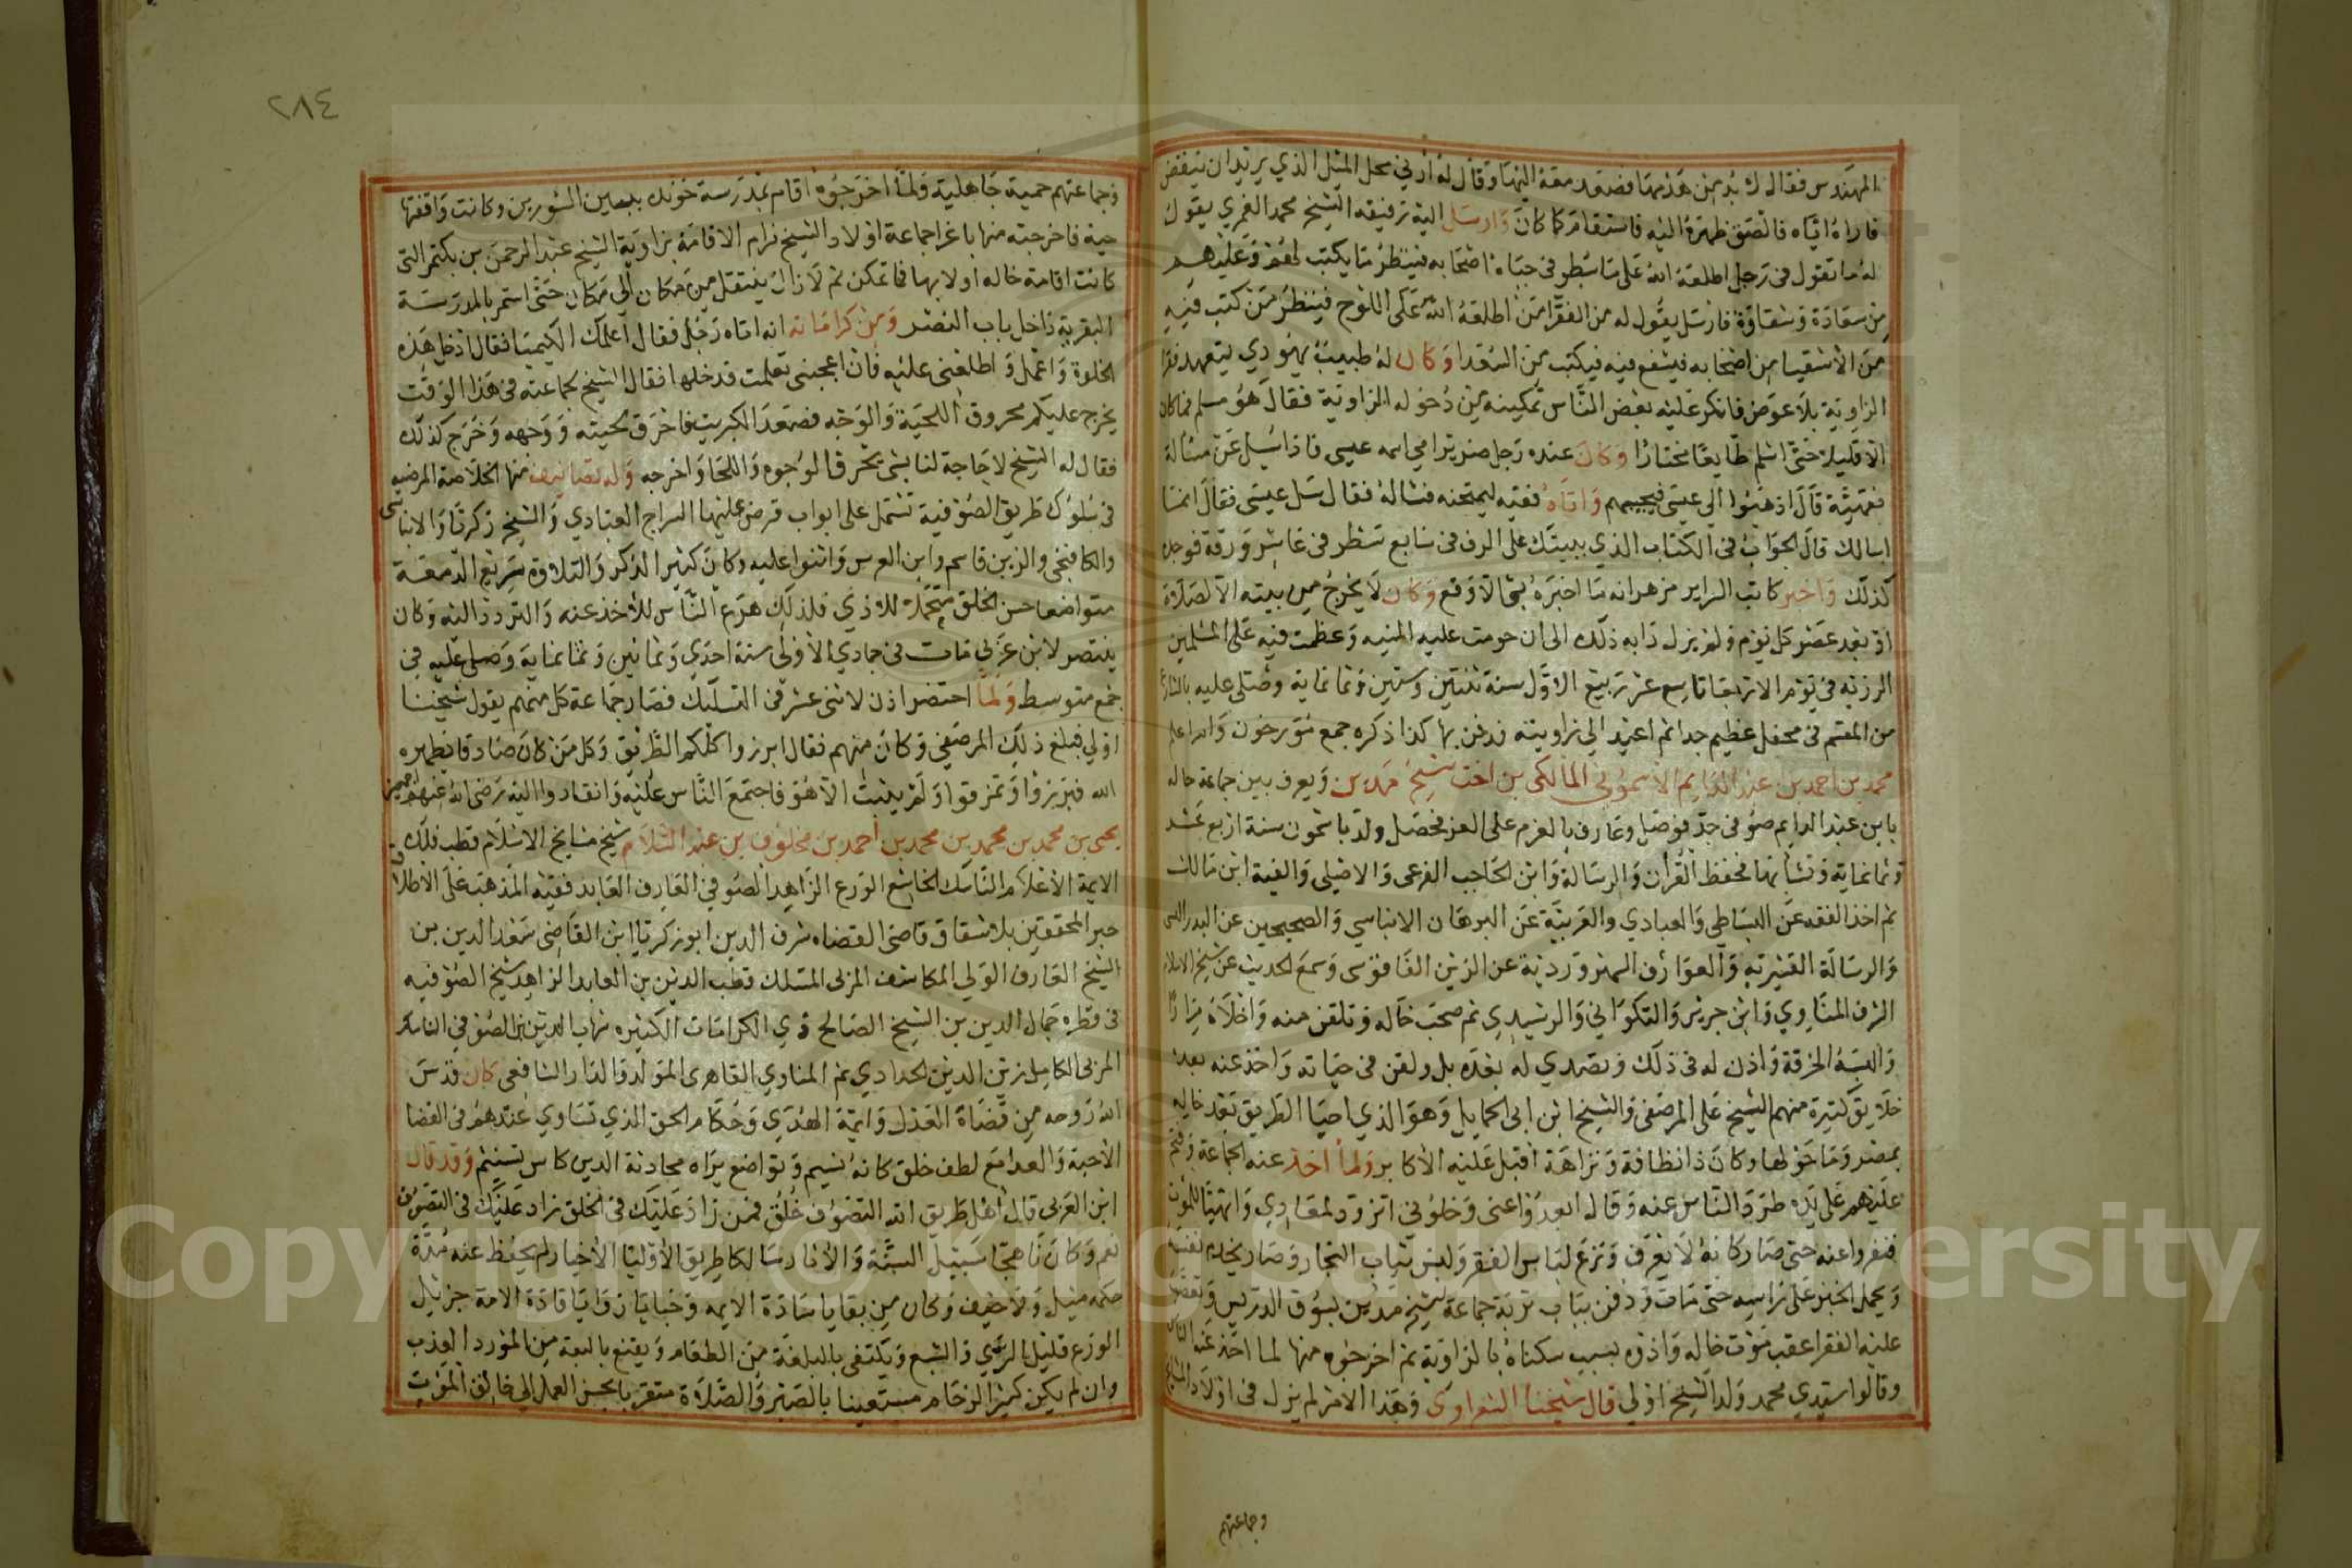 المهندس فقال لا بد من هدمها فصعد معه اليها وقال له ارني محل الميل الذي يريد ان ينقض
فاراه اياه فالصق ظهره اليه فاستقام كما كان وارسل اليه رفيقه الشيخ محمد الغمري يقول
له ما تقول في رجل اطلعه الله على ما سطر في جباه اصحابه فينظر ما يكتب لهم وعليهم
من سعادة وشقاوة فارسل يقول له من الفقرا من اطلعه الله على اللوح فينظر من كتب فيه
من الاشقيا من اصحابه فيشفع فيه فيكتب من السعدا وكان له طبيب يهودي يتعهد فقرا
الزاوية بلا عوض فانكر عليه بعض الناس تمكينه من دخوله الزاوية فقال هو مسلم فما كان
الا قليلا حتى اسلم طايعا مختارا وكان عنده رجل ضرير امي اسمه عيسى فاذا سيل عن مسالة
فقهية قال اذهبوا الى عيسى فيجيبهم واتاه فقيه ليمتحنه فساله فقال سل عيسى فقال انما
اسالك قال الجواب في الكتاب الذي ببيتك على الرف في سابع سطر في عاشر ورقة فوجده
كذلك واخبر كاتب السر ابن مزهر انه ما اخبره بشي الا وقع وكان لا يخرج من بيته الا لصلاة
او بعد عصر كل يوم ولم يزل دابه ذلك الى ان حومت عليه المنيه وعظمت فيه على المسلمين
الرزية في يوم الاربعا تاسع عشر ربيع الاول سنة ثنتين وستين وثمانماية وصلى عليه بالشارع
من المقسم في محفل عظيم جدا ثم اعيد الى زاويته فدفن بها كذا ذكره جمع مورخون والله اعلم
محمد بن احمد بن عبد الدايم الاشموني المالكي بن اخت شيخ مدين ويعرف بين جماعة خاله
بابن عبد الدايم صوفي جد فوصل وعارف بالعزم على العز فحصل ولد باشمون سنة اربع عشر
وثمانماية ونشا بها فحفظ القران والرسالة وابن الحاجب الفرعي والاصلي والفية ابن مالك
ثم اخذ الفقه عن البساطي والعبادي والعربية عن البرهان الانباسي والصحيحين عن البدر
والرسالة القشيرية والعوارف السهروردية عن الزين الفاقوسي وسمع الحديث عن شيخ الاسلام
الشرف المناوي وابن جرير والتكوراني والرشيدي ثم صحب خاله وتلقن منه واخلاه مرارا
والبسه الخرقة واذن له في ذلك وتصدى له بعده بل ولقن في حياته واخذ عنه بعده
خلايق كثيرة منهم الشيخ على المرصفي والشيخ ابن ابي الحمايل وهو الذي احيا الطريق بعد خاله
بمصر وما حولها وكان ذا نظافة ونزاهة اقبل عليه الاكابر ولما اخذ عنه الجماعة وفتح
عليهم على يده طرد الناس عنه وقال ابعدوا عني وخلوني اتزود لمعادي واتهيا للموت
فنفروا عنه حتى صار كانه لا يعرف ونزع لباس الفقر ولبس ثياب التجار وصار يخدم نفسه
ويحمل الخبز على راسه حتى مات ودفن بباب تربة جماعة شيخ مدين بسوق الدريس وتعصب
عليه الفقرا عقب موت خاله واذوه بسبب سكناه بالزاوية ثم اخرجوه منها لما اخذ عنه الناس
وقالوا سيدي محمد ولد الشيخ اولى قال شيخنا الشعراوي وهذا الامر لم يزل في اولاد المشايخ
وجماعتهم
٢٨٤
وجماعتهم حمية جاهلية ولما اخرجوه اقام بمدرسة خوند ببين السورين وكانت واقفتها
حية فاخرجته منها باغرا جماعة اولاد الشيخ فرام الاقامة بزاوية الشيخ عبد الرحمن بن بكتمر التي
كانت اقامة خاله اولا بها فما تمكن ثم لا زال ينتقل من مكان الى مكان حتى استمر بالمدرسة
البقرية داخل باب النصر ومن كراماته انه اتاه رجل فقال اعلمك الكيميا فقال ادخل هذه
الخلوة واعمل واطلعني عليه فان اعجبني تعلمت فدخلها فقال الشيخ لجماعته في هذا الوقت
يخرج عليكم محروق اللحية والوجه فصعد الكبريت فاحرق لحيته ووجهه وخرج كذلك
فقال له الشيخ لا حاجة لنا بشي يحرق الوجوه واللحا واخرجه وله تصانيف منها الخلاصة المرضيه
في سلوك طريق الصوفية تشتمل على ابواب قرض عليها السراج العبادي والشيخ زكريا والانباسي
والكافيجي والزين قاسم وابن الغرس واثنوا عليه وكان كثير الذكر والتلاوة سريع الدمعة
متواضعا حسن الخلق متحملا للاذى فلذلك هرع الناس للاخذ عنه والتردد اليه وكان
ينتصر لابن عربي مات في جمادي الاولى سنة احدى وثمانين وثمانماية وصلى عليه في
جمع متوسط ولما احتضر اذن لاثني عشر في التسليك فصار جماعة كل منهم يقول شيخنا
اولى فبلغ ذلك المرصفي وكان منهم فقال ابرزوا كلكم للطريق وكل من كان صادقا يظهره
الله فبرزوا وتمزقوا ولم يثبت الا هو فاجتمع الناس عليه وانقادوا اليه رضى الله عنهم اجمعين
يحيى بن محمد بن محمد بن محمد بن احمد بن مخلوف بن عبد السلام شيخ مشايخ الاسلام قطب فلك
الايمة الاعلام الناسك الخاشع الورع الزاهد الصوفي العارف العابد فقيه المذهب على الاطلاق
حبر المحققين بلا شقاق قاضي القضاه شرف الدين ابو زكريا ابن القاضي سعد الدين بن
الشيخ العارف الولي المكاشف المربي المسلك قطب الدين بن العابد الزاهد شيخ الصوفيه
في قطره جمال الدين بن الشيخ الصالح ذي الكرامات الكثيره شهاب الدين بن الصوفي الناسك
المربي الكامل زين الدين الحدادي ثم المناوي القاهرى المولد والدار الشافعي كان قدس
الله روحه من قضاة العدل وايمة الهدى وحكام الحق الذي تساوى عندهم في القضا
الاحبة والعدا مع لطف خلق كانه نسيم وتواضع يراه محادثة الدين كاس تسنيم وقد قال
ابن العربي قال اهل طريق الله التصوف خلق فمن زاد عليك في الخلق زاد عليك في التصوف
نعم وكان ناهجا سبيل السنة والاثار سالكا طريق الاوليا الاخيار لم يحفظ عنه مدة
حكمه ميل ولا حيف وكان من بقايا سادة الايمه وخبايا زوايا قادة الامة جزيل
الورع قليل الري والشبع ويكتفي بالبلغة من الطعام ويقنع بالبعة من المورد العذب
وان لم يكن كثير الزحام مستعينا بالصبر والصلاة متقربا بحسن العمل الى خالق الموت